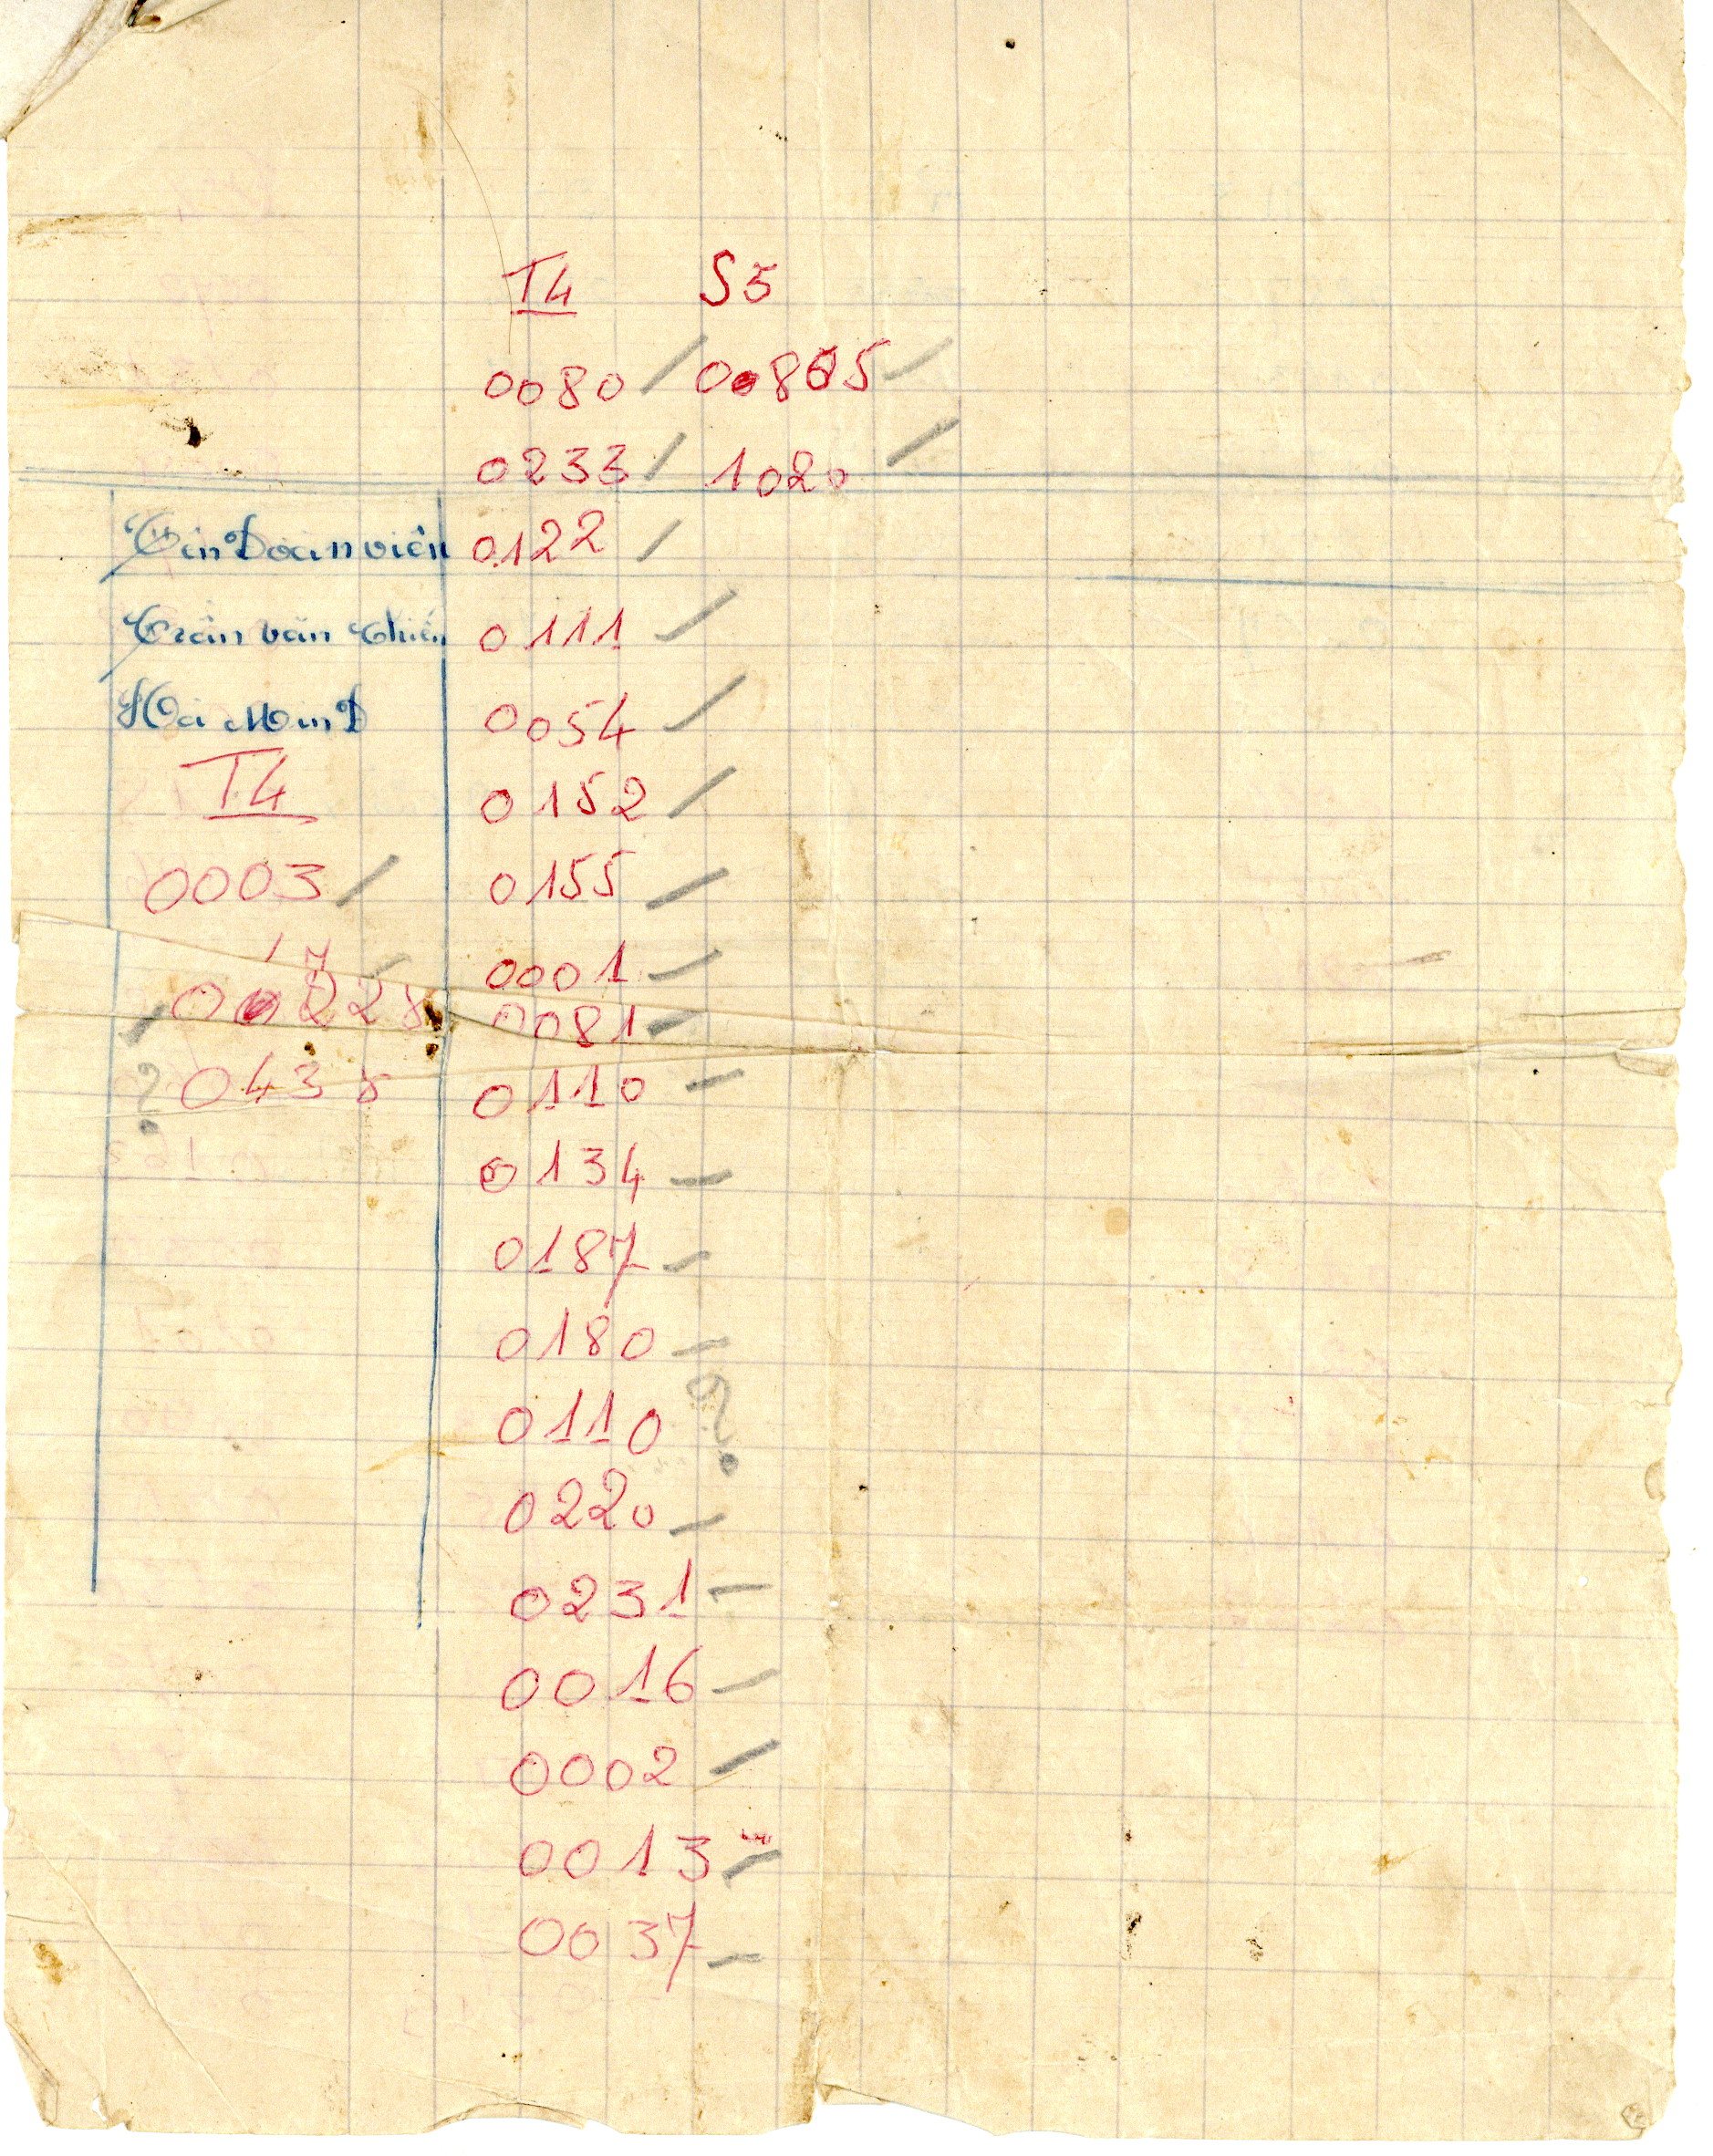 T4 S5
0080 / 00865 /
0233 / 1020 /
Tên Đoàn viên 0122 /
Trần văn Chiến 0111 /
0054 /
T4 0152 /
0003 / 0155 /
0001 /
0081 /
? 0438 0110 /
0134 /
0187 /
0180 /
0110 ?
0220 /
0231 /
0016 /
0002 /
0013 /
0037 /